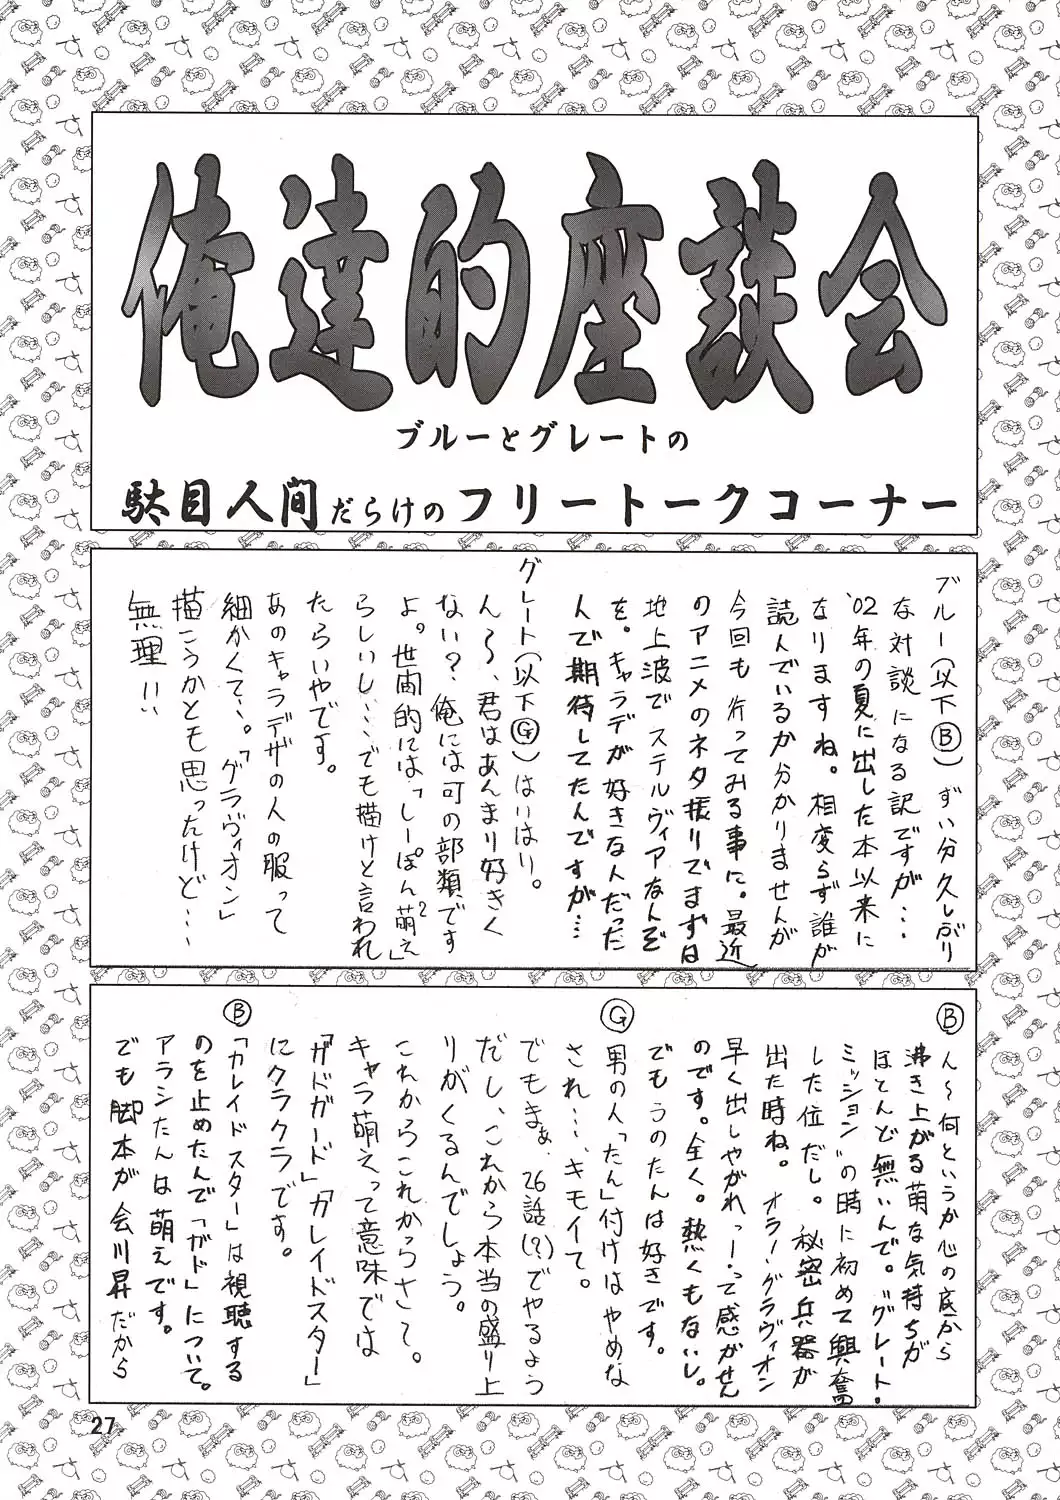 俺達的座談会
ブルーとグレートの
駄目人間だらけのフリートークコーナー
ブルー(以下Ⓑ)ずい分久しぶり
な対談になる訳ですが…
'02年の夏に出した本以来に
なりますね。相変らず誰が
読んでいるか分かりませんが
今回も行ってみる事に。最近
のアニメのネタ振りでまずは
地上波でステルヴィアなんぞ
を。キャラデが好きなんだった
んで期待してたんですが…
グレート(以下Ⓖ)はいはり。
ん〜、君はあんまり好きく
ない?俺には可の部類です
よ。世間的には「しーぽん萌え」
らしいし…でも描けと言われ
たらいやです。
あのキャラデザの人の服って
細かくて…。「グラヴィオン」
描こうかとも思ったけど…
無理!!
Ⓑ
ん〜何というか心の底から
沸き上がる萌な気持ちが
ほとんど無いんで。"グレート・
ミッション"の時に初めて興奮
した位だし。秘密兵器が
出た時ね。オラーグラヴィオン
早く出しやがれっ!って感がせん
のです。全く。熱くもないし。
でもうのたんは好きです。
Ⓖ
男の人「たん」付けはやめな
され…キモイて。
でもまぁ、26話(?)でやるよう
だし、これから本当の盛り上
りがくるんでしょう。
これからこれからさて。
キャラ萌えって意味では
「ガドガード」「ガレイドスター」
にクラクラです。
Ⓑ
「カレイドスター」は視聴する
のを止めたんで「ガド」について。
アラシたんは萌えです。
でも脚本が会川昇だから
27